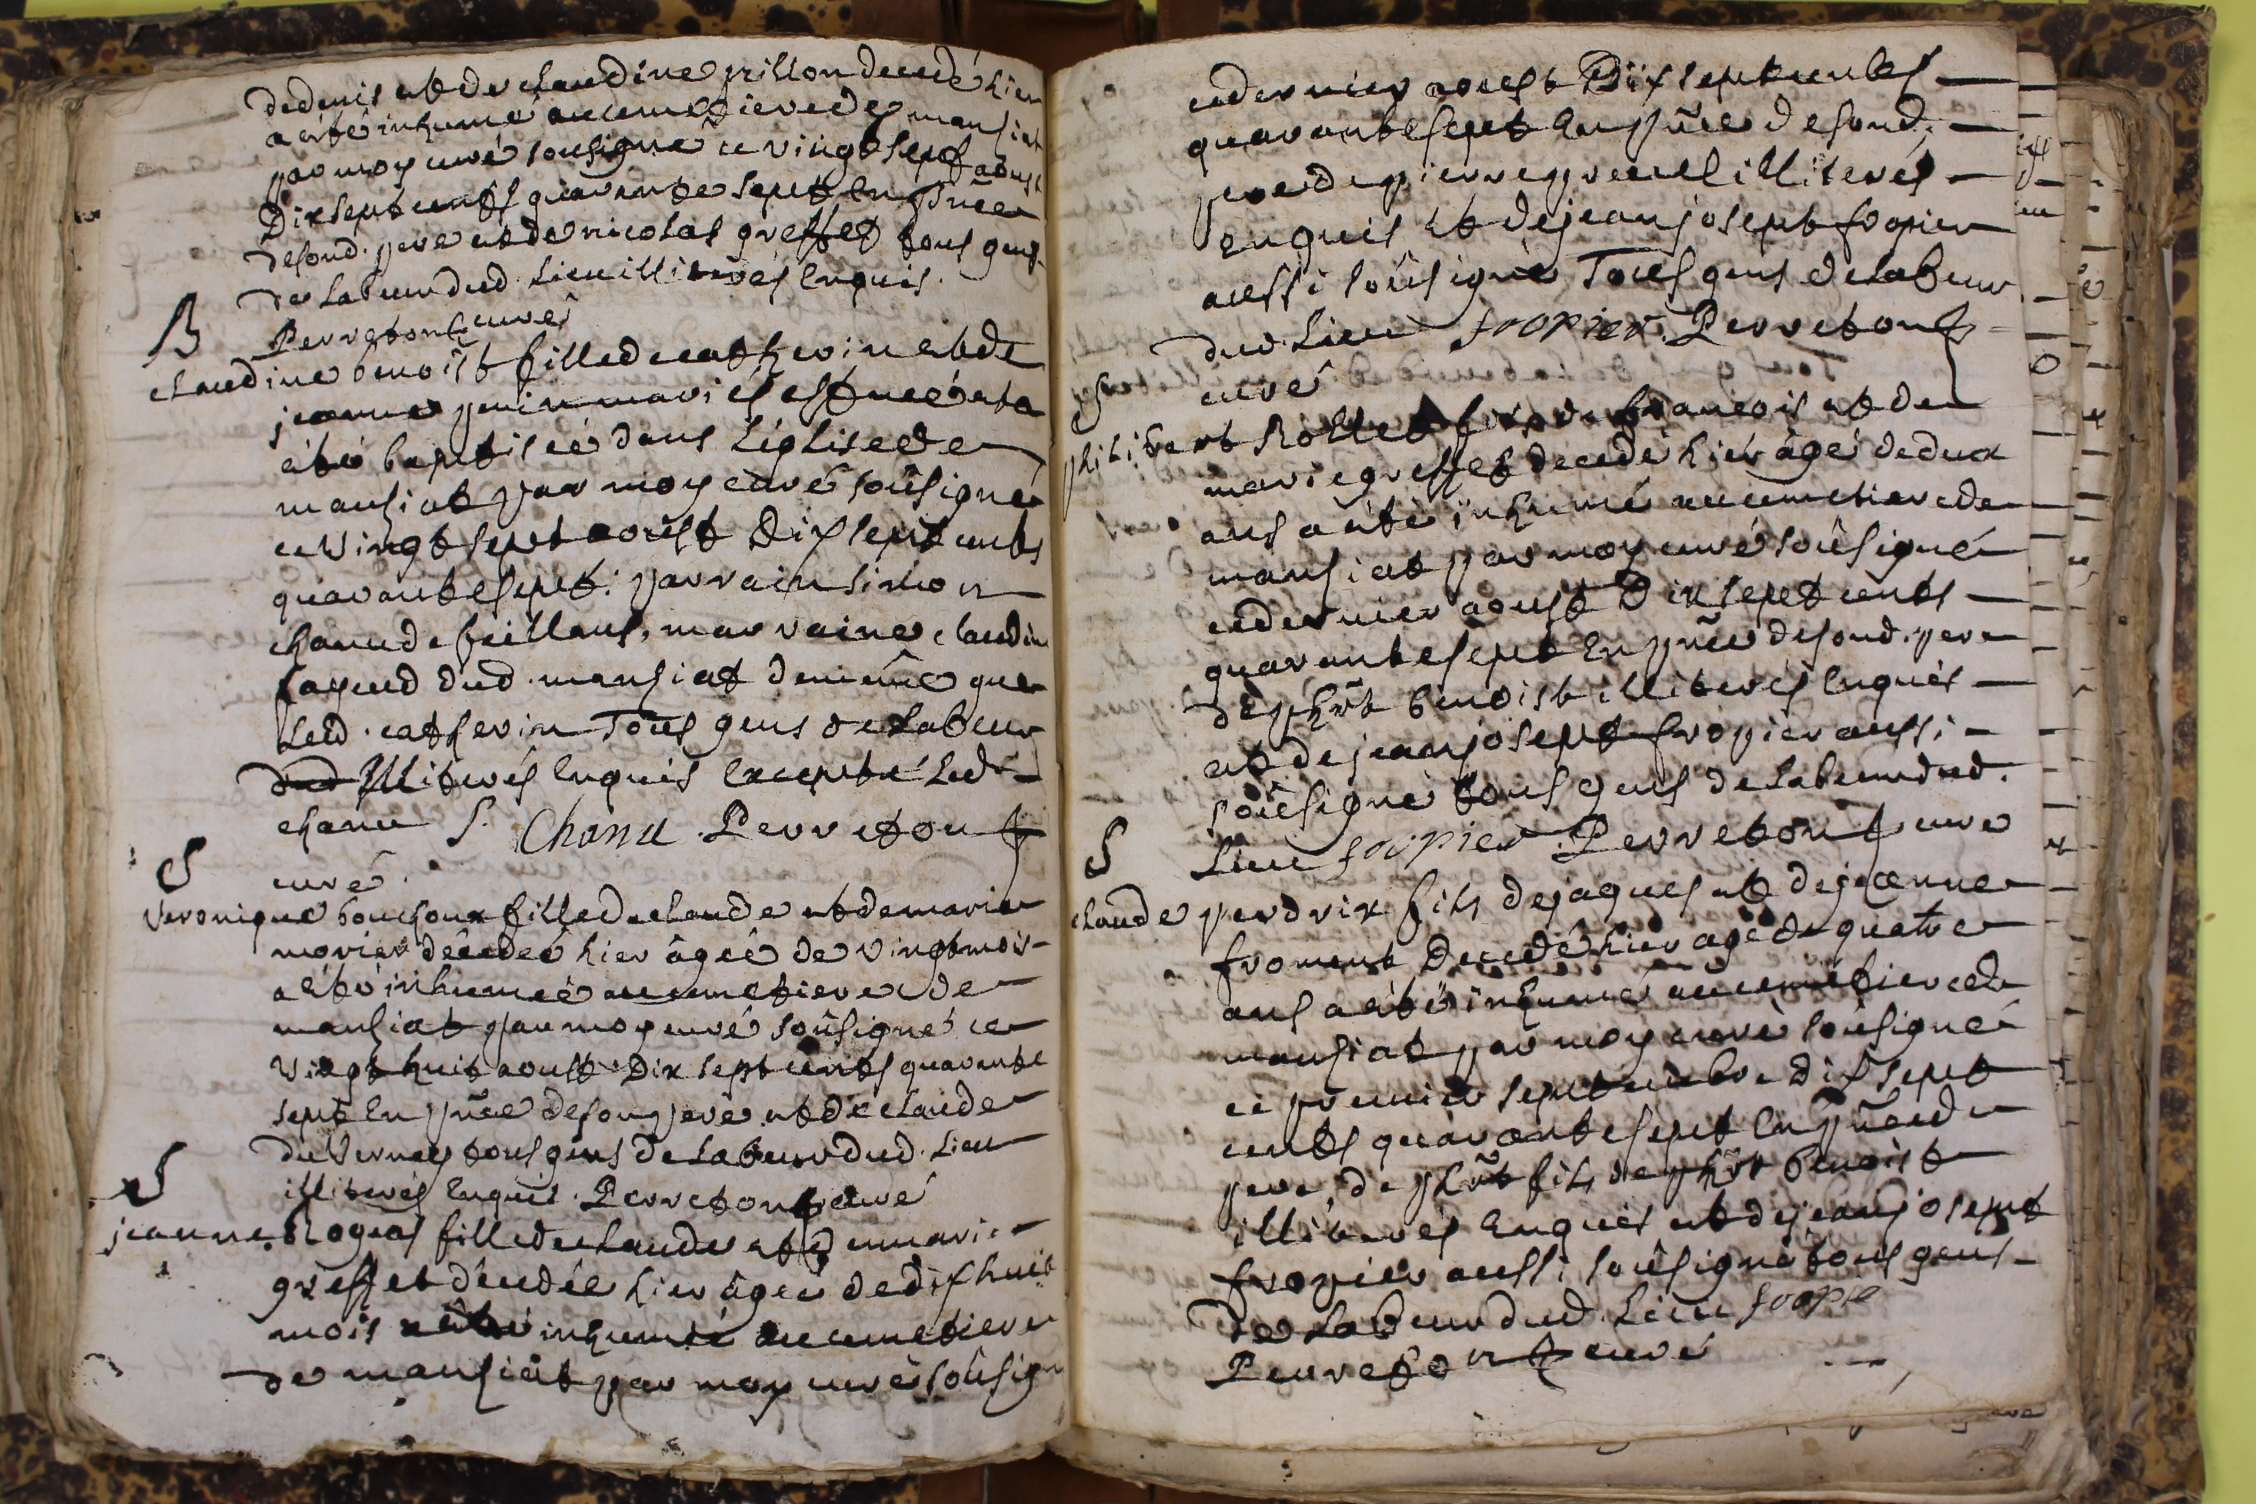 dedenis et de claudine pillon decedé hier
a eté inhumé au cemetiere de mansiat
par moy curé sousigné ce vingt sept aoust
Dix sept cents quarante sept En pñce
desond. pere et de nicolas greffet tous gens
de Labeur dud. Lieu illiterés Enquis.
Perreton curé
B
claudine benoist fille de catherin et de
jeanne perrin mariés est neé et a
été baptiseé dans L'église de
mansiat par moy curé soûsigné
ce vingt sept aoust Dix sept cents
quarante sept. parrain simon
chanu de feillans, marraine claudine
fayend dud. mansiat demême que
Led. catherin Tous gens de Labeur
dud Illiterés Enquis Excepté Led.
chanu S. Chanu Perreton
curé.
S
Veronique bouchoux fille de claude et de marie
morier décedeé hier âgeé de vingt mois
a été inhumeé au cemetiere de
mansiat par moy curé soûsigné ce
vingt huit aoust Dix sept cents quarante
sept En pñce de son pere et de claude
du Vernay tous gens de Labeur dud. Lieu
illiterés Enquis. Perreton curé
S
jeanne Rogeas fille de claude et de marie
greffet décedée hier âgeé de dix huit
mois a été inhumeé au cemetiere
de mansiat par moy curé soûsigné
ce dernier aoust Dix sept cents
quarante sept En pñce de sond.
pere de pierre preuel illiterés
enquis et de jean josept fropier
aussi soûsigné Tous gens de Labeur
dud. Lieu fropier. Perreton
curé
S
philibert Rollet fils de francois et de
marie greffet decedé hier âgé de deux
ans a été inhumé au cemetiere de
mansiat par moy curé soûsigné
ce dernier aoust Dix sept cents
quarante sept En pñce de sond. pere
de phirt benoist illiterés Enquis
et de jean josept fropier aussi
soûsigné tous gens de Labeur dud.
Lieu fropier Perreton curé
S
claude perdrix fils de jaques et de jeanne
froment Decedé hier agé de quatre
ans a été inhumé au cemetiere de
mansiat par moy curé soûsigné
ce premier septembre Dix sept
cents quarante sept En pñce de
pere, de phirt fils de phirt benoist
illiterés Enquis et de jean josept
fropier aussi soûsigné tous gens
de Labeur dud. Lieu fropie
Perreton curé